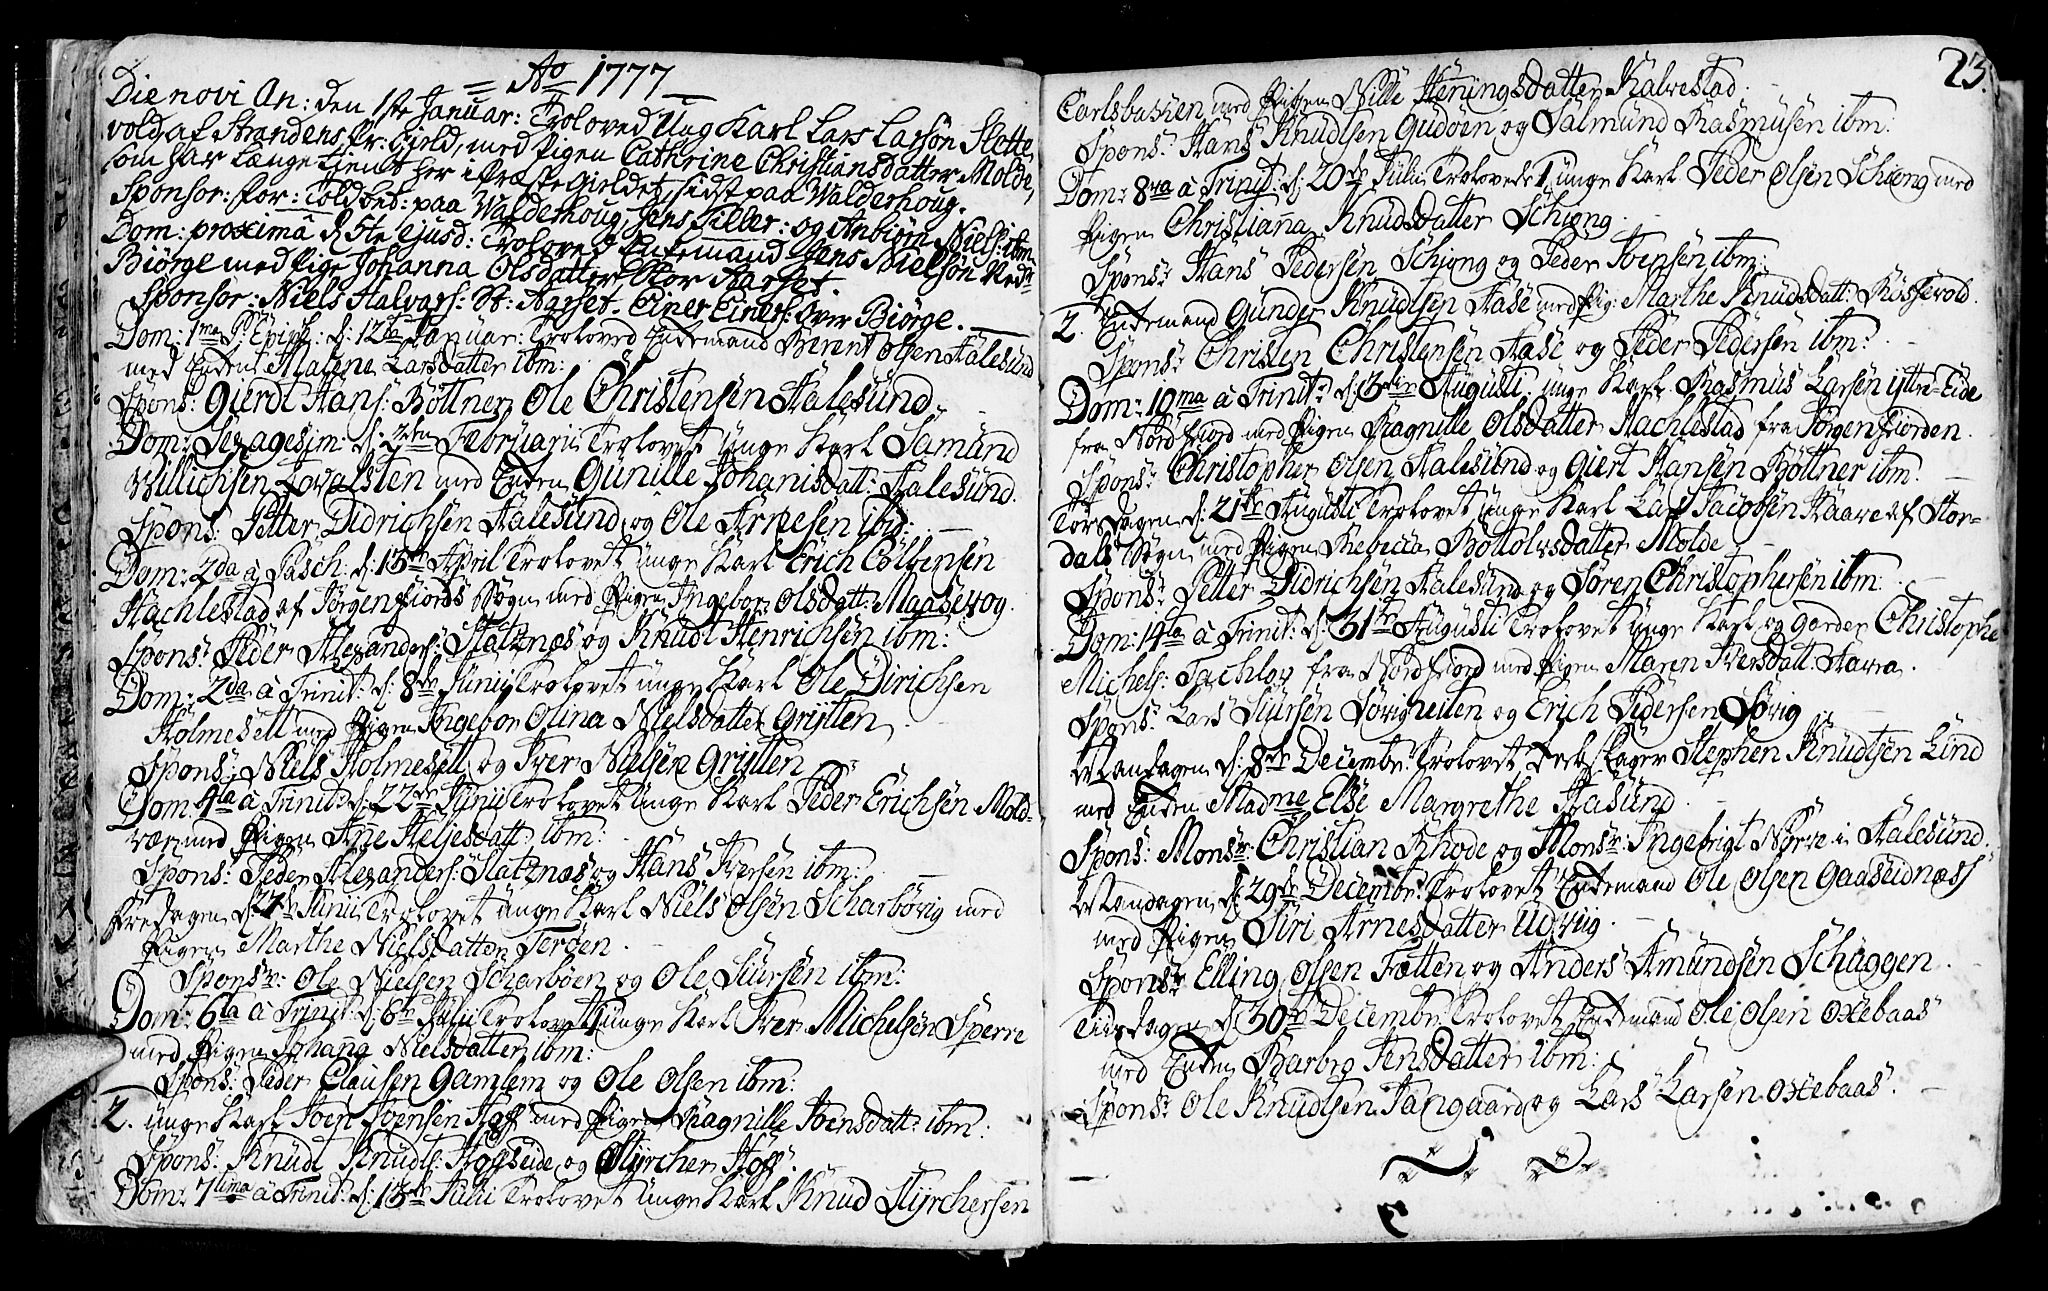 Ao 1777
Die novi An: den 1ste Januar: Troloved Ung Karl Lars Larsøn Slotte
vold af Strandens Pr: Gield, med Pigen Cathrine Christiansdatter Molde,
som har længe tient her i Præste Gieldet, sidst paa Walderhoug.
Sponsor: for: Told bet: paa Walderhoug: Jens Filler: og Anbiørn Niels: ibm
Dom: proxima d 5te Ejusd: Troloved Enkemand Jens Nielsøn Nedr
Biørge med Pige Johanna Olsdatter, Stor Aarset.
Sponsor: Niels Halvars: St: Aarset. Einer Einers: över Biørge.
Dom: 1ma P: Epiph: d: 12te Januar: Troloved Enkemand Berent Olsen Aalesund
med Enken Malene Larsdatter ibm:
Spons: Gierdt Hans: Bøttner, Ole Christensen Aalesund.
Dom: Sexagesim: d: 2den Februarii Trolovet unge Karl Samund
Willichsen Lovalsten med Enken Gunille Johanisdatt: Aalesund.
Spons: Petter Didrichsen Aalesund, og Ole Arnesen ibid:
Dom: 2da à Pasch: d: 13de April Trolovet unge Karl Erich Colbensen
Hachlestad af Jørgenfiords Sogn med Pigen Ingebor: Olsdatt: Maasevog.
Spons: Peder Alexanders: Slatznæs og Knudt Henrichsen ibm:
Dom: 2da à Trinit: d: 8de Junii Trolovet unge Karl Ole Dirichsen
Holmesett med Pigen Ingebor Olina Nielsdatter Grytten
Spons: Niels Holmesett og Iver Nielsen Grytten
Dom: 4ta à Trinit: d: 22de Junii Trolovet unge Karl Peder Erichsen Mold-
vær med Pigen Ane Heljesdatt ibm:
Spons: Peder Alexanders: Slatznæs og Hans Iversen ibm:
Fredagen d: 27de Junii Trolovet unge Karl Niels Olsen Scharbøvig med
Pigen Marthe Nielsdatter Terøen.
Sponsr: Ole Nielsen Scharbøen og Ole Siursen ibm:
Dom: 6ta à Trinit: d: 6te Julii Trolovet 1 unge Karl Iver Michelsen Sperre
med Pigen Johana Nielsdatter ibm:
Spons: Peder Clausen Gamlem og Ole Olsen ibm:
2. unge Karl Iver Ivensen Hoff med Pigen Ragnille Ivensdatt: ibm:
Spons: Knudt Knudts: Hogseide, og Styrcher Hoff.
Dom: 7tima à Trinit: d: 13de Julii Trolovet unge Karl Knud Styrchersen
23.
Carlsbakken med Pigen Nille Heningsdatter Kalvestad.
Spons: Hans Knudsen Gudøen og Salmund Rasmusen ibm:
Dom: 8va à Trinit: d: 20de Julii Trolovede 1 unge Karl Peder Olsen Schiong med
Pigen Christiana Knudsdatter Schiong.
Spons: Hans Pedersen Schiong og Peder Ivensen ibm:
2. Enkemand Gunder Knudtsen Aase med Pig: Marthe Knudsdatt: Røssevold.
Spons: Christen Christensen Aase og Peder Pedersen ibm:
Dom: 10ma à Trinit: d: 3die Augusti, unge Karl Rasmus Larsen Ytre-Eide
fra Nordfiord med Pigen Ragnille Olsdatter Hachlestad fra Jørgenfiorden.
Spons: Christopher Olsen Aalesund og Giert Hansen Bøttner ibm.
Torsdagen d: 21de Augusti Trolovet unge Karl Lars Jacobsen Haare af Stor-
dals Sogn med Pigen Rebecca Bottolvsdatter Molde
Spons: Petter Didrichsen Aalesund og Søren Christophersen ibm:
Dom: 14ta à Trinit: d: 31te Augusti Trolovet unge Karl og Garder Christophe
Michels: Tachlov fra Nordfiord med Pigen Maren Iversdatt: Havra.
Spons: Lars Siursen Søvigneiten og Erich Pedersen Søvig
Mandagen d: 8de Decembr: Trolovet Stephen Knudtsen Lind
med Enken Madme Else Margrethe Aasund.
Spons: Monsr: Christian Rhode og Monsr: Ingebrigt Nørve i Aalesund.
Mandagen d: 29de Decembr: Trolovet Enkemand Ole Olsen Gaaseidnæss
med Pigen Siri Arnesdatter Udvig.
Spons: Elling Olsen Tøtten og Anders Amundsen Schuggen.
Tirsdagen d: 30te Decembr: Trolovet Enkemand Ole Olsen Oxebaas
med Enken Barbro Jensdatter ibm:
Spons: Ole Knudtsen Tangaard og Lars Larsen Oxebaas.